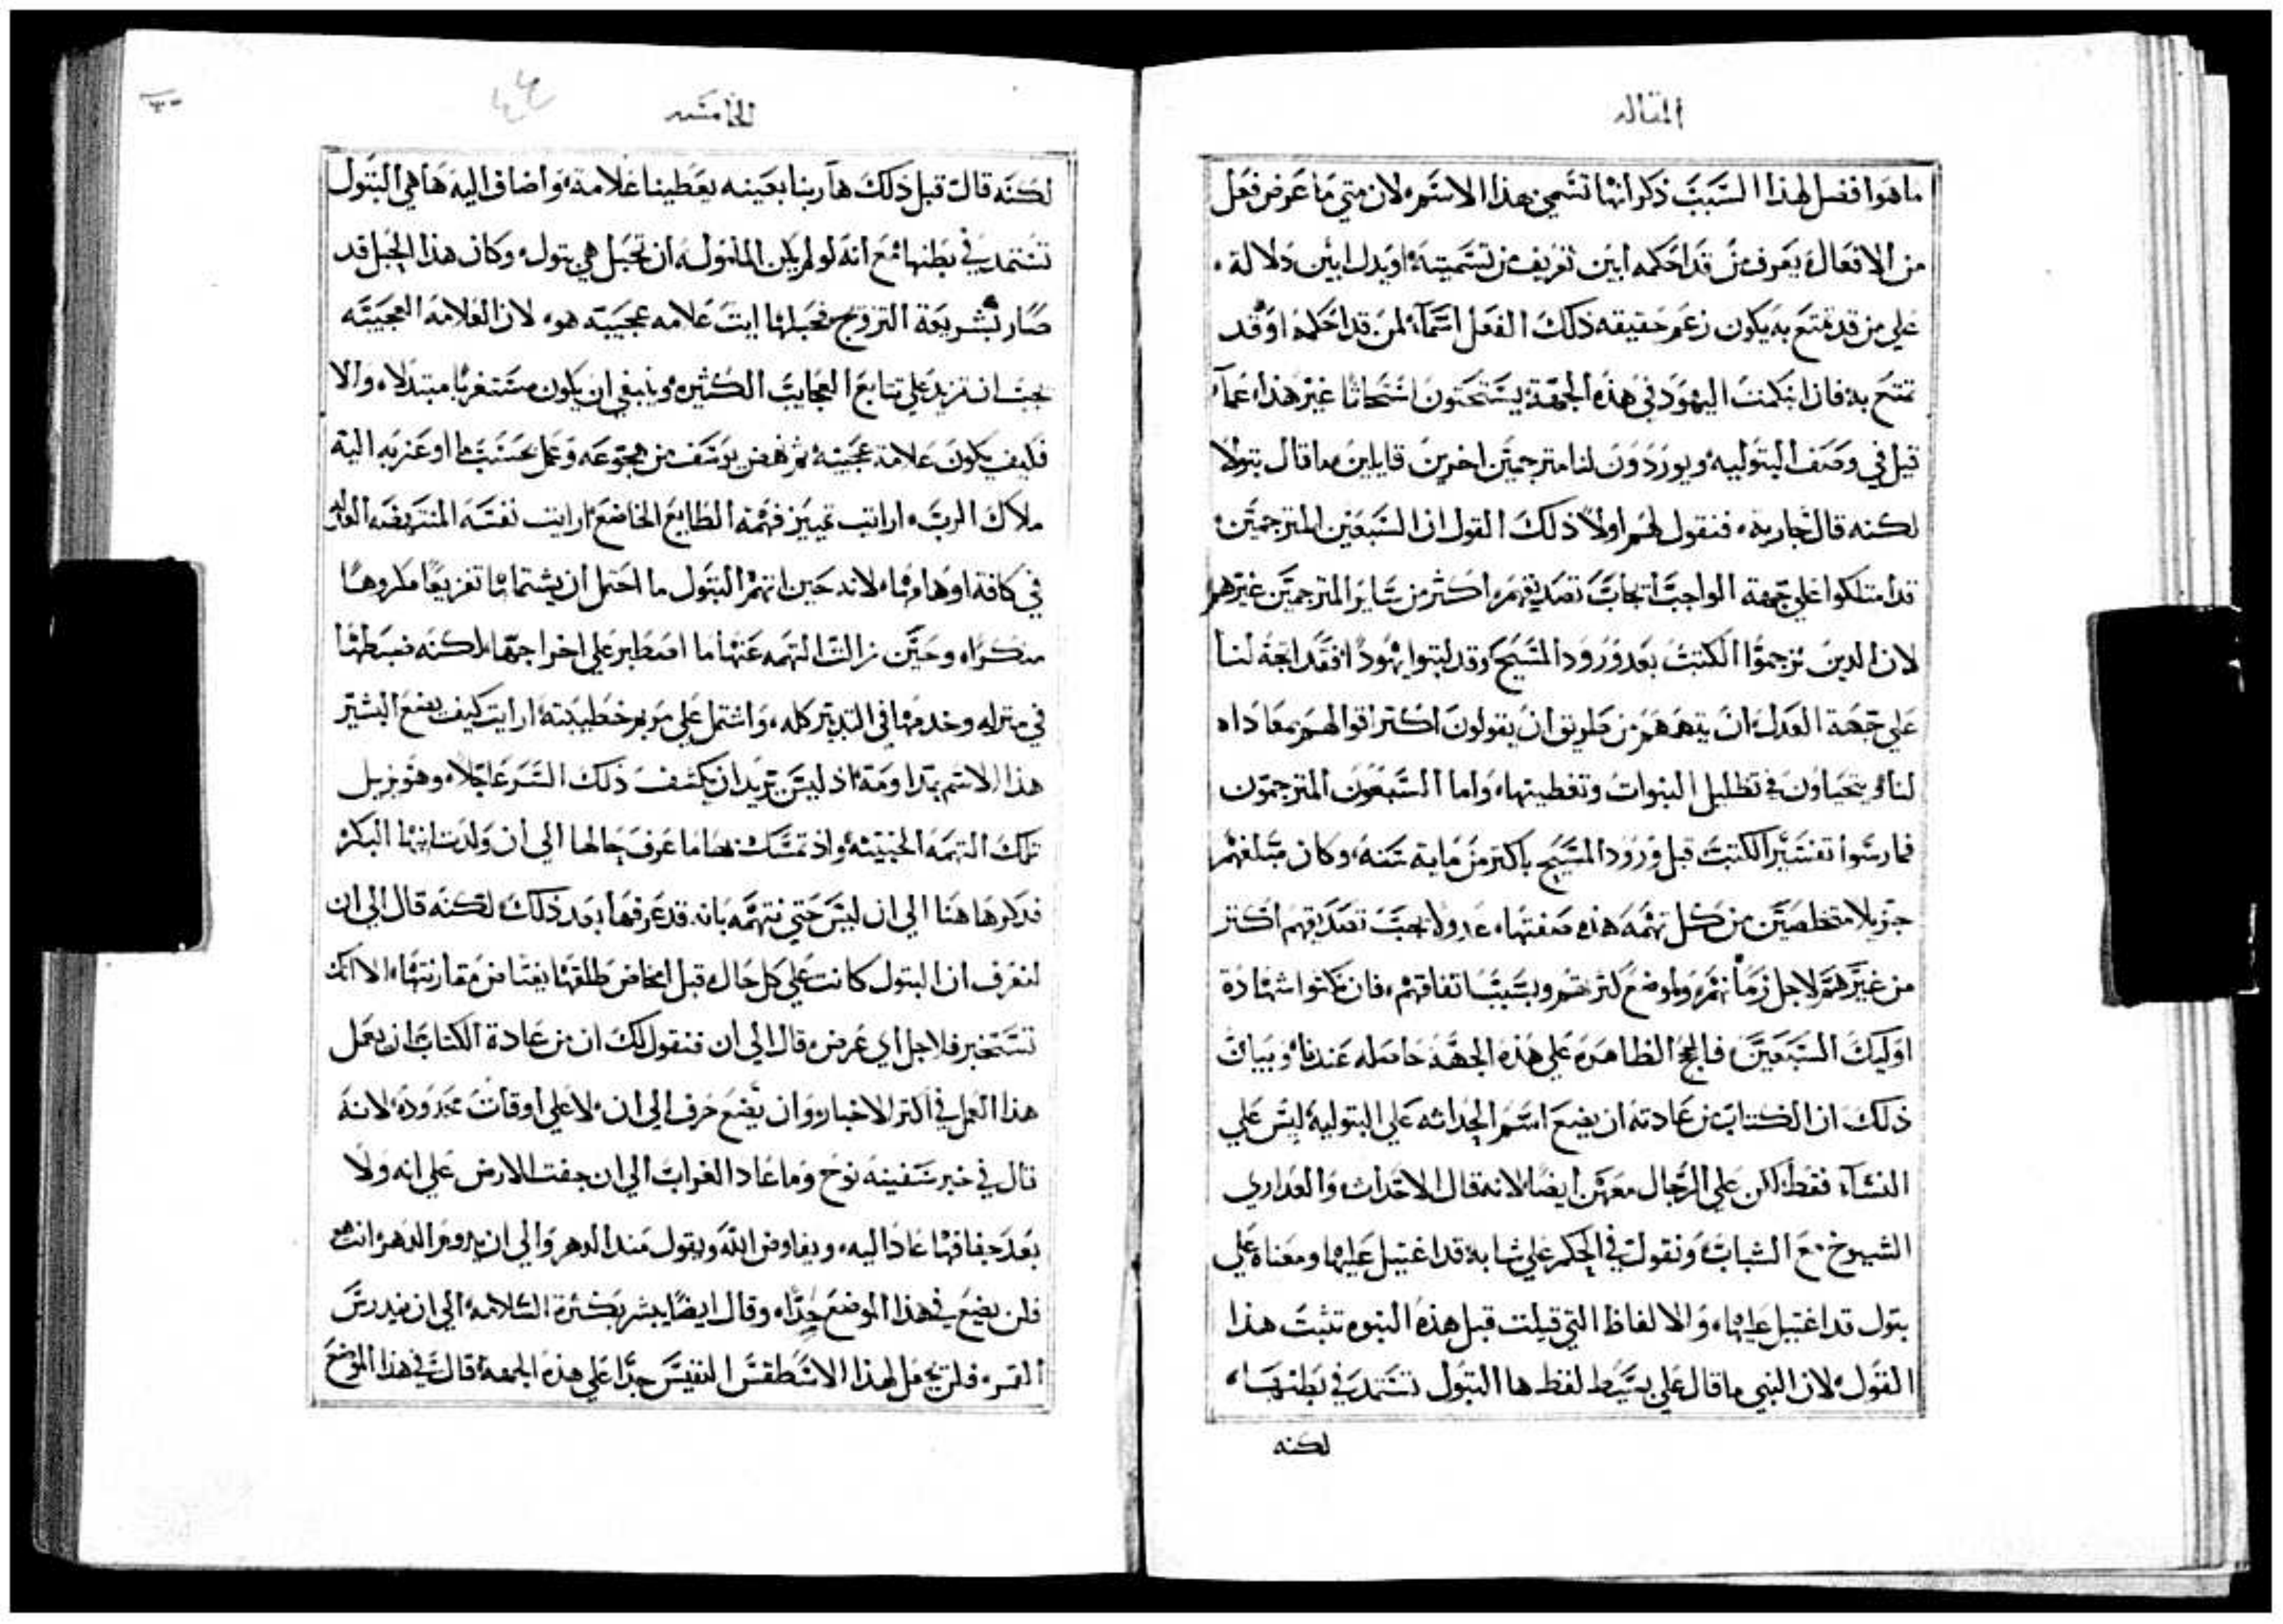 المقاله
ما هو افضل لهذا السبب ذكر انها تسمي هذا الاسم لان متي ما عرض فعل
من الافعال يعرف من قد احكمه ابين تعريف من تسميته او يدل ابين دلالة
علي من قد تمتع به يكون زعم حقيقه ذلك الفعل اسماً لمن قد احكمه او قد
تمتع به فان ابكمت اليهود في هذه الجهة يستحثون استحاثا غير هذا عما
قيل في وصف البتوليه ويوردون لنا مترجمين اخرين قايلين ما قال بتولا
لكنه قال جارية فنقول لهم اولا ذلك القول ان السبعين المترجمين
قد امتلكوا علي جهة الواجب اتجاب تصديقهم اكثر من ساير المترجمين غيرهم
لان الدين ترجموا الكتب بعد ورود المسيح وقد لبتوا يهوداً فقد اتجه لنا
علي جهة العدل ان يتهمهم من طريق ان يقولون اكتر اقوالهم بمعاداه
لنا ويتحياون في تظليل النبوات وتغطيتها واما السبعون المترجمون
فمارسوا تفسير الكتب قبل ورود المسيح باكتر من ماية سنه وكان مبلغهم
جزيلا متخلصين من كل تهمه هذه صفتها عدولا يجب تصديقهم اكتر
من غيرهم لاجل زمانهم ولموضع كثرتهم وبسبب اتفاقهم فان نكتوا شهادة
اوليك السبعين فالحجج الظاهره علي هذه الجهه حاصله عندنا وبيان
ذلك ان الكتاب من عادته ان يضع اسم الحداثه علي البتوليه ليس علي
النساء فقط لكن علي الرجال معهن ايضا لانه قال الاحداث والعداري
الشيوخ مع الشباب ونقول في الحكم علي شابة قد اغتيل عليها ومعناه علي
بتول قد اغتيل عليها والالفاظ التي قيلت قبل هذه النبوه تثبت هذا
القول لان النبي ما قال علي بسيط لفظ ها البتول تستمد في بطنها
لكنه
الخامسه
لكنه قال قبل ذلك ها ربنا بعينه يعطينا علامة واضاف اليه ها هي البتول
تستمد في بطنها مع انه لو لم يكن المامول ان تحبل هي بتول وكان هذا الحبل قد
صار بشريعة التزويج فحبلها ايت علامه عجيبه هو لان العلامه العجيبه
يجب ان تزيد علي تتابع العجايب الكثيره وينبغي ان يكون مستغربا مبتدلا والا
فكيف يكون علامة عجيبه ثم نهض يوسف من هجوعه وعمل بحسب ما اوعز به اليه
ملاك الرب ارايت تمييز فهمه الطايع الخاضع ارايت نفسه المنتهضه
في كافة اوهامها لانه حين اتهم البتول ما احتمل ان يشتمها تقريعا مكروها
منكرا وحين زالت التهمه عنها ما اصطبر علي اخراجها لكنه ضبطها
في منزله وخدمها في التدبير كله واشتمل علي مريم خطيبته ارايت كيف يضع البشير
هذا الاسم بمداومة اذ ليس يريد ان يكشف ذلك السر عاجلا وهو يزيل
تلك التهمه الخبيثه واذ تمسك بها ما عرف حالها الي ان ولدت ابنها البكر
فدكر ها هنا الي ان ليس حتي نتهمه بانه قد عرفها بعد ذلك لكنه قال الي ان
لنعرف ان البتول كانت علي كل حال قبل امخاض طلقها بغتا من مقارنتها الا انك
تستخبر فلاجل اي غرض قال الي ان فنقول لك ان من عادة الكتاب ان يعمل
هذا العمل في اكتر الاخبار وان يضع حرف الي ان لا علي اوقات محدوده لانه
قال في خبر سفينه نوح وما عاد الغراب الي ان جفت الارض علي انه ولا
بعد جفافها عاد اليه ويفاوض الله ويقول مند الدهر والي ان يدوم الدهر انت هو
فلن يضع في هذا الموضع حدا وقال ايضا يبشر بكثرة السلامه الي ان يندرس
القمر فلن يجعل لهذا الاسطقس النفيس جدا علي هذه الجهه قال في هذا الموضع